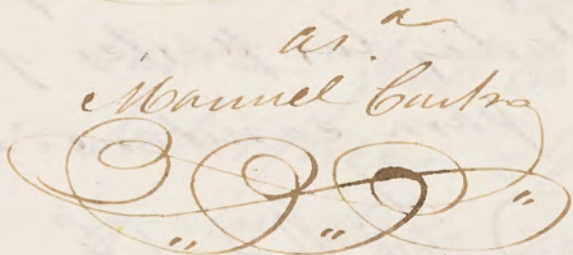 as.ª
Manuel Castro